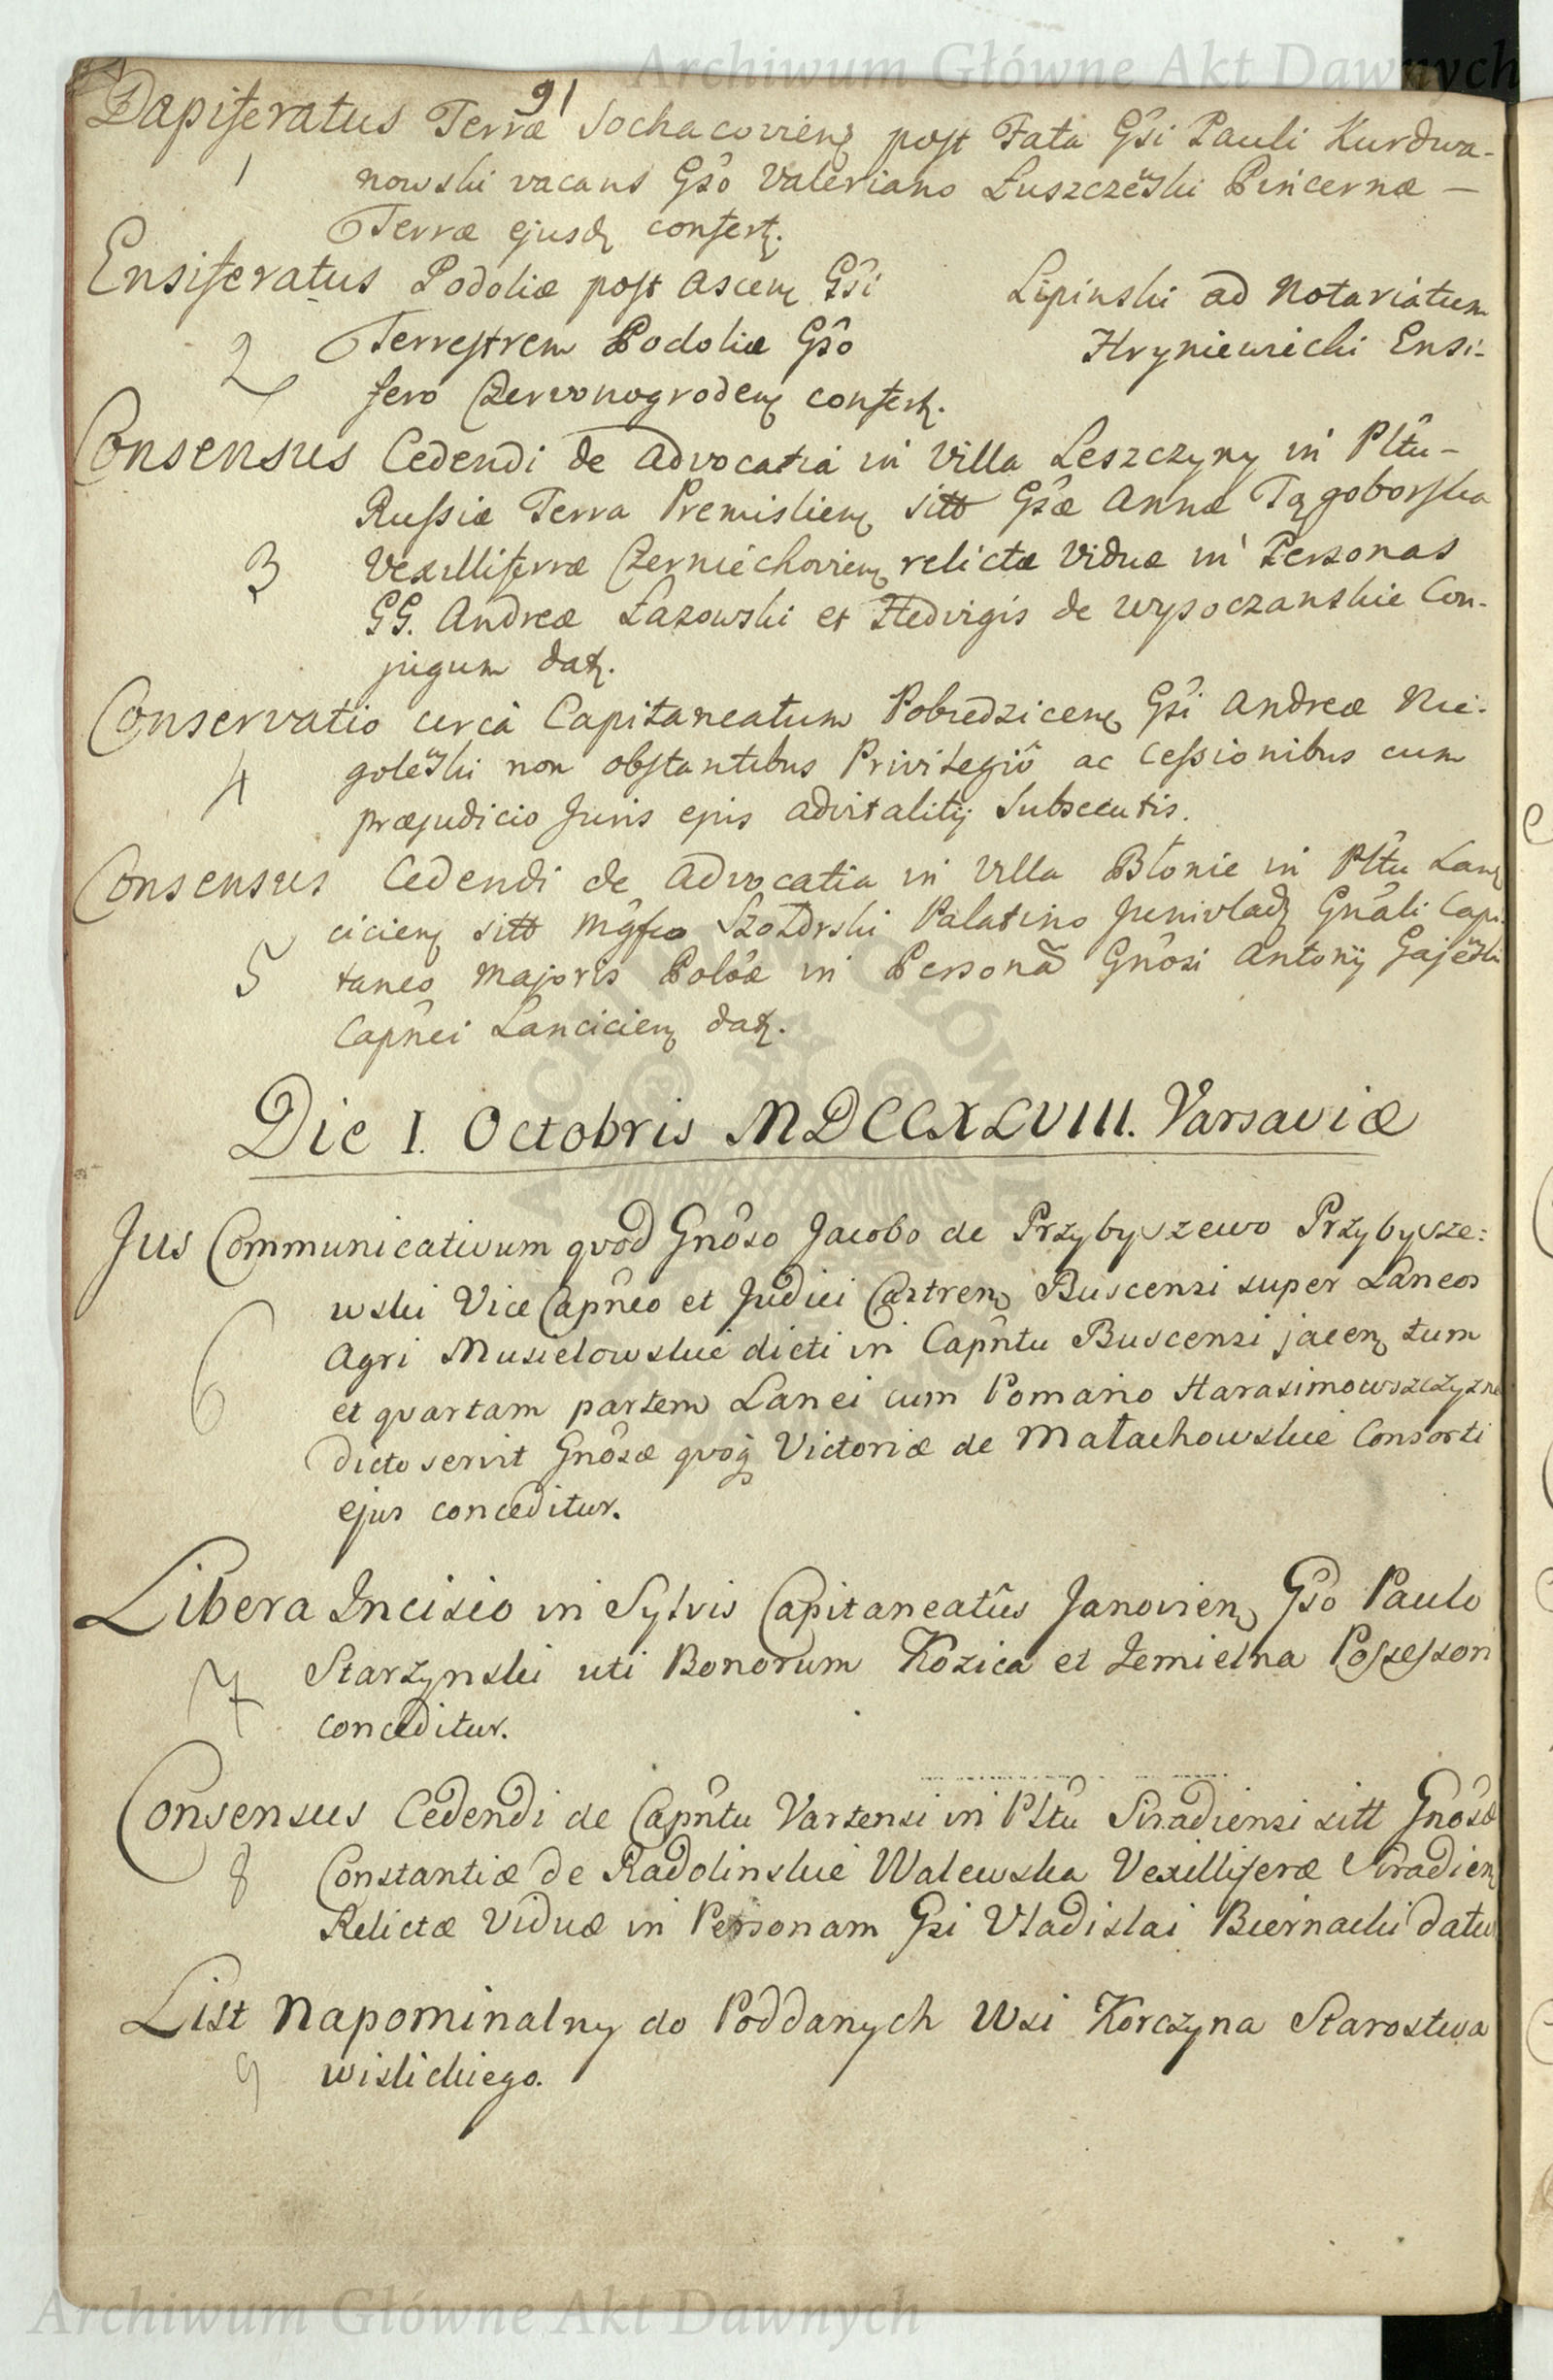 Archiwum Główne Akt Dawnych
91
Dapiferatus Terræ Sochacovien post Fata Gsi Pauli Kurdwa-
1 nowski vacans Gso Valeriano Łuszczeski Pincernæ —
Terræ ejusd confert.
Ensiferatus Podoliæ post Ascen Gsi Lipinski ad Notariatum
2 Terrestrem Podoliæ Gso Hryniewiecki Ensi-
fero Czerwonogroden confert.
Consensus Cedendi de Advocatia in Villa Leszczyny in Pltu-
Russiæ Terra Premislien sitt Gsæ Annæ Tęgoborska
3 Vexilliferæ Czerniechovien relictæ Viduæ in Personas
GG. Andreæ Łazowski et Hedvigis de Wysoczanskie Con-
jugum dat.
Conservatio circa Capitaneatum Pobiedzicen Gsi Andreæ Nie-
4 goleski non obstantibus Privilegio ac Cessionibus cum
præjudicio Juris ejus advitalitij Subsecutis.
Consensus Cedendi de Advocatia in Villa Błonie in Pltu Lan
cicien sitt Mgfco Szołdrski Palatino Junivlad Gnali Capi-
5 taneo Majoris Poloæ in Persona Gnosi Antonij Gajeski
Capnei Lancicien dat.
Die I. Octobris MDCCXLVIII. Varsaviæ
Jus Communicativum quod Gnoso Jacobo de Przybyszewo Przybysze:
wski Vice Capneo et Judici Castren Buscensi super Laneos
6 Agri Musielowskie dicti in Capntu Buscensi jacen tum
et quartam partem Lanei cum Pomario Harasimowszczyzne
dicto servit Gnosæ quoq Victoriæ de Małachowskie Consorti
ejus conceditur.
Libera Incisio in Sylvis Capitaneatus Janovien Gso Paulo
7 Starzynski uti Bonorum Kozica et Zemielna Possessori
conceditur.
Consensus Cedendi de Capntu Vartensi in Pltu Siradiensi sitt Gnosæ
8 Constantiæ de Radolinskie Walewska Vexilliferæ Siradien
Relictæ Viduæ in Personam Gsi Vladislai Biernacki datur
List Napominalny do Poddanych Wsi Korczyna Starostwa
9 wislickiego.
Archiwum Główne Akt Dawnych